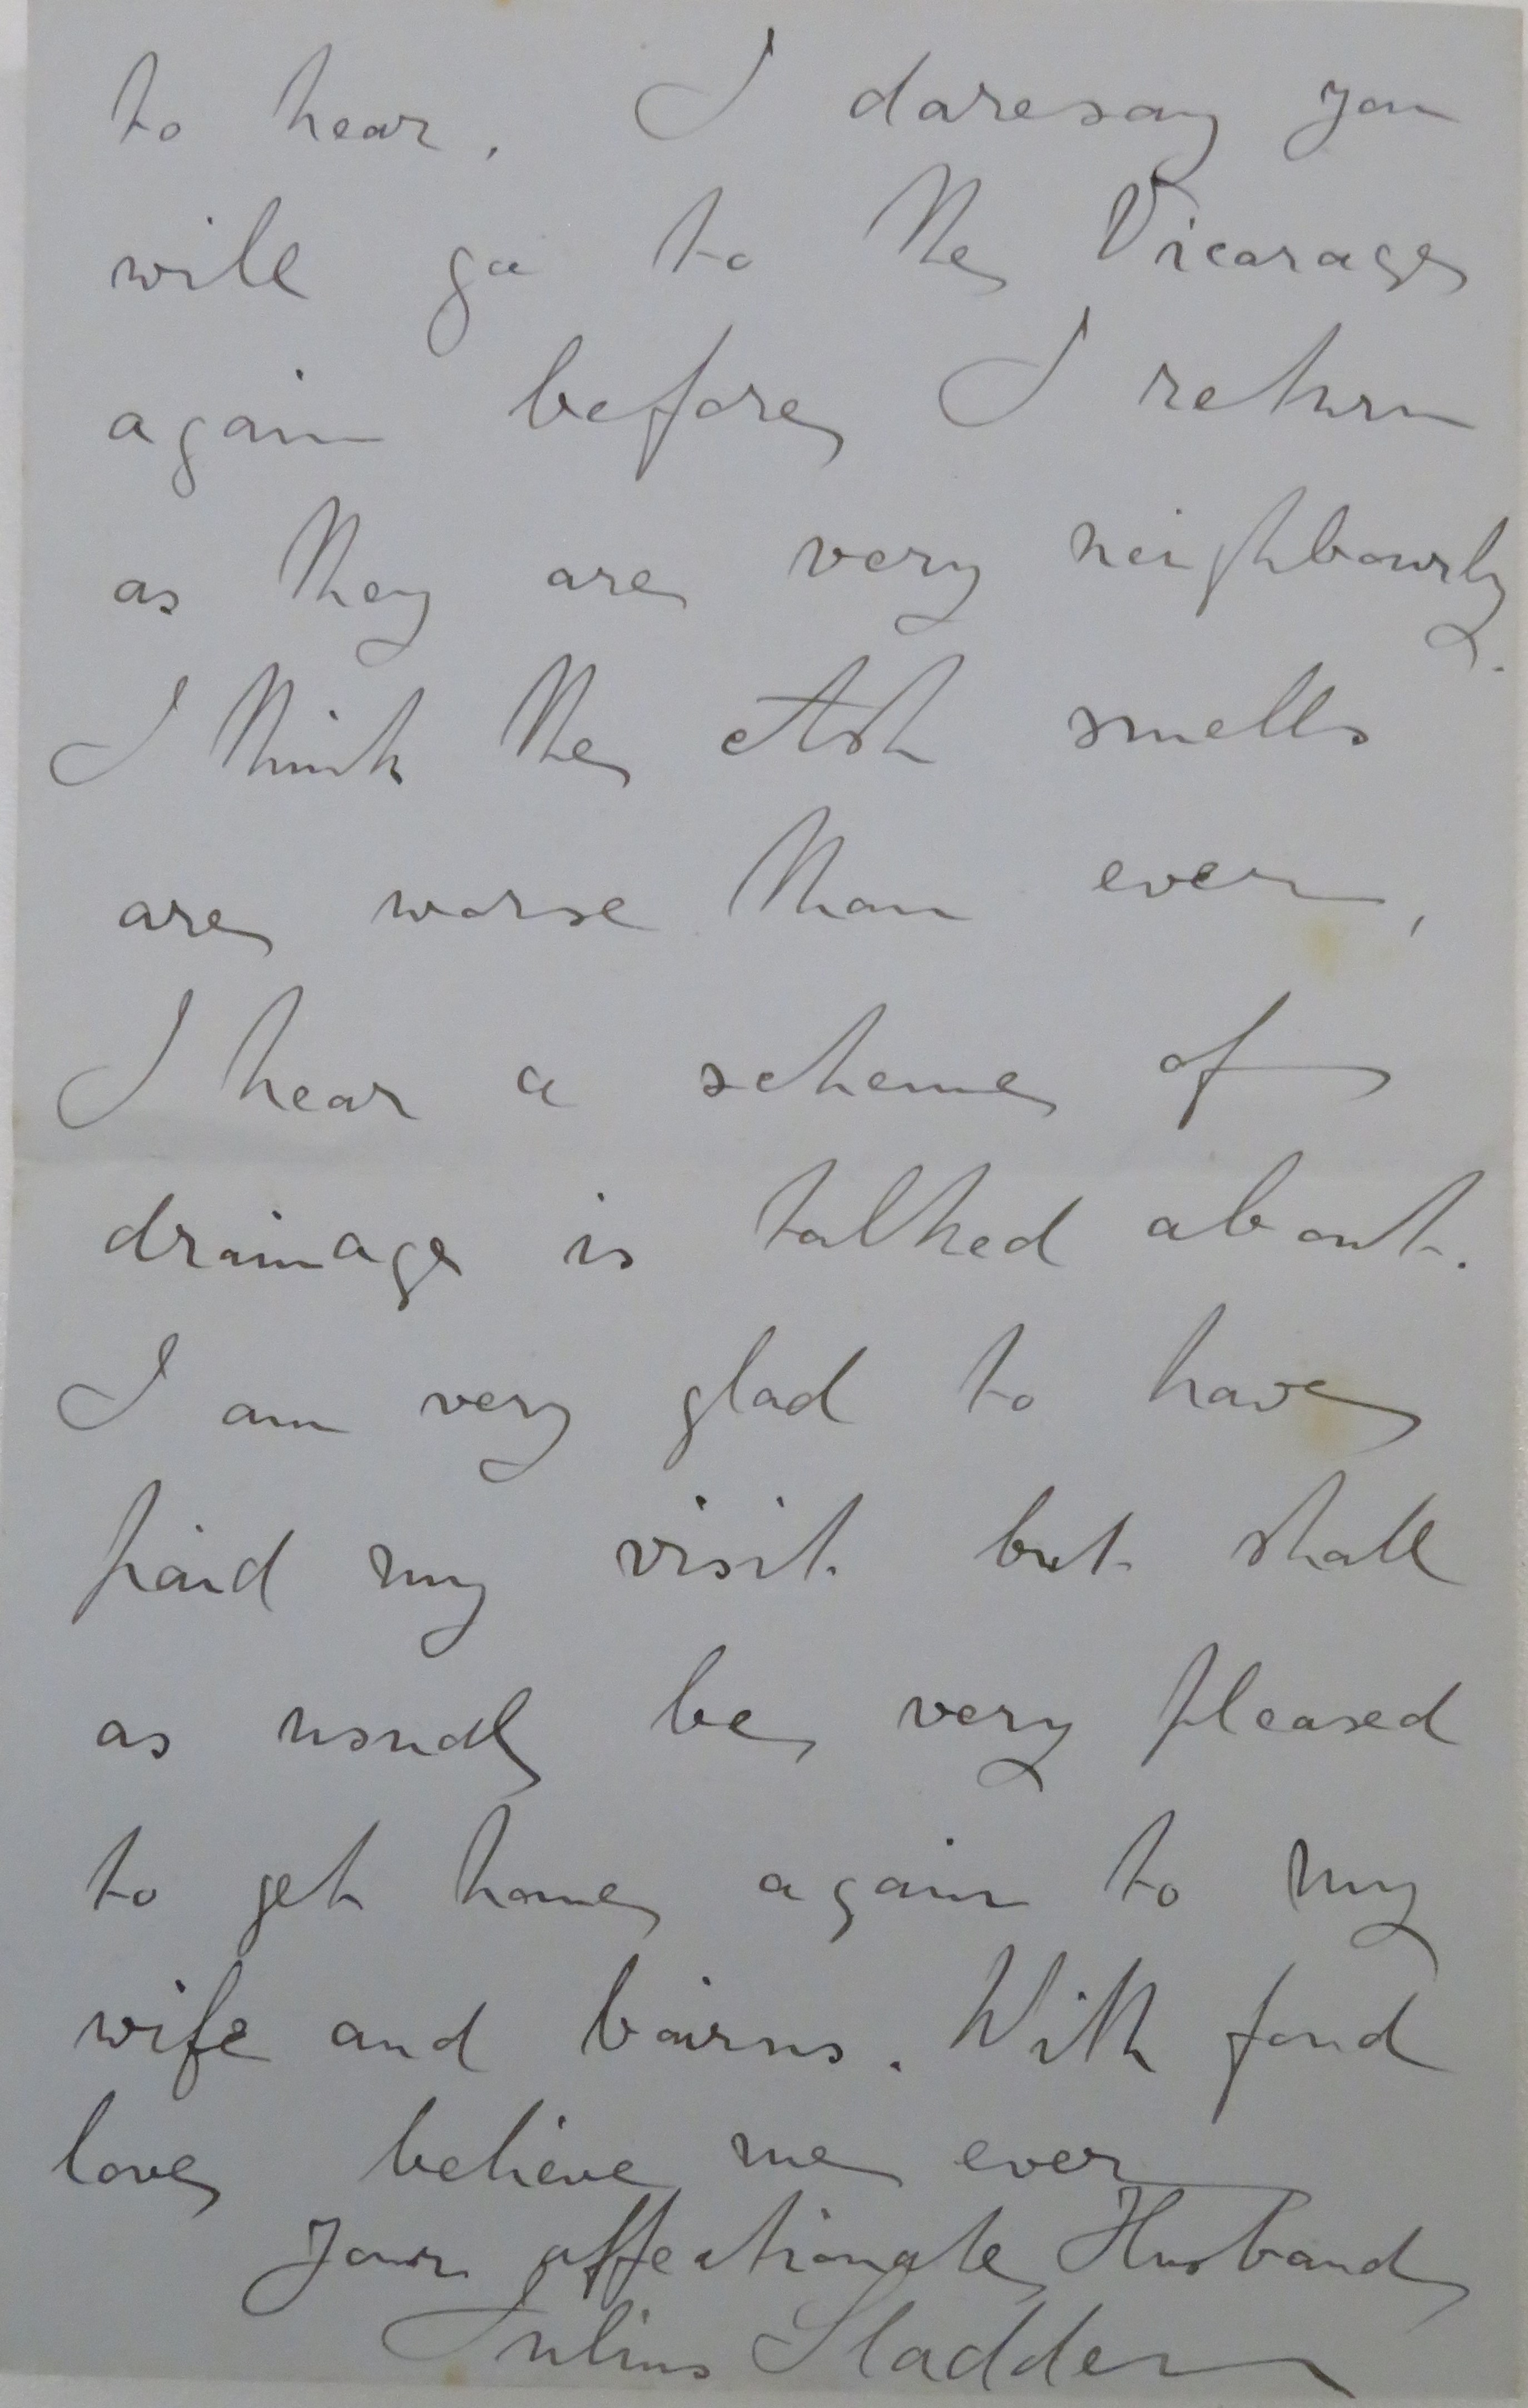 to hear. I daresay you
will go to the Vicarage
again before I return
as they are very neighbourly.
I think the Ash smells
are worse than ever,
I hear a scheme of
drainage is talked about.
I am very glad to have
paid my visit but shall
as usual be very pleased
to get home again to my
wife and bairns. With fond
love believe me ever
Your affectionate Husband
Julius Sladden